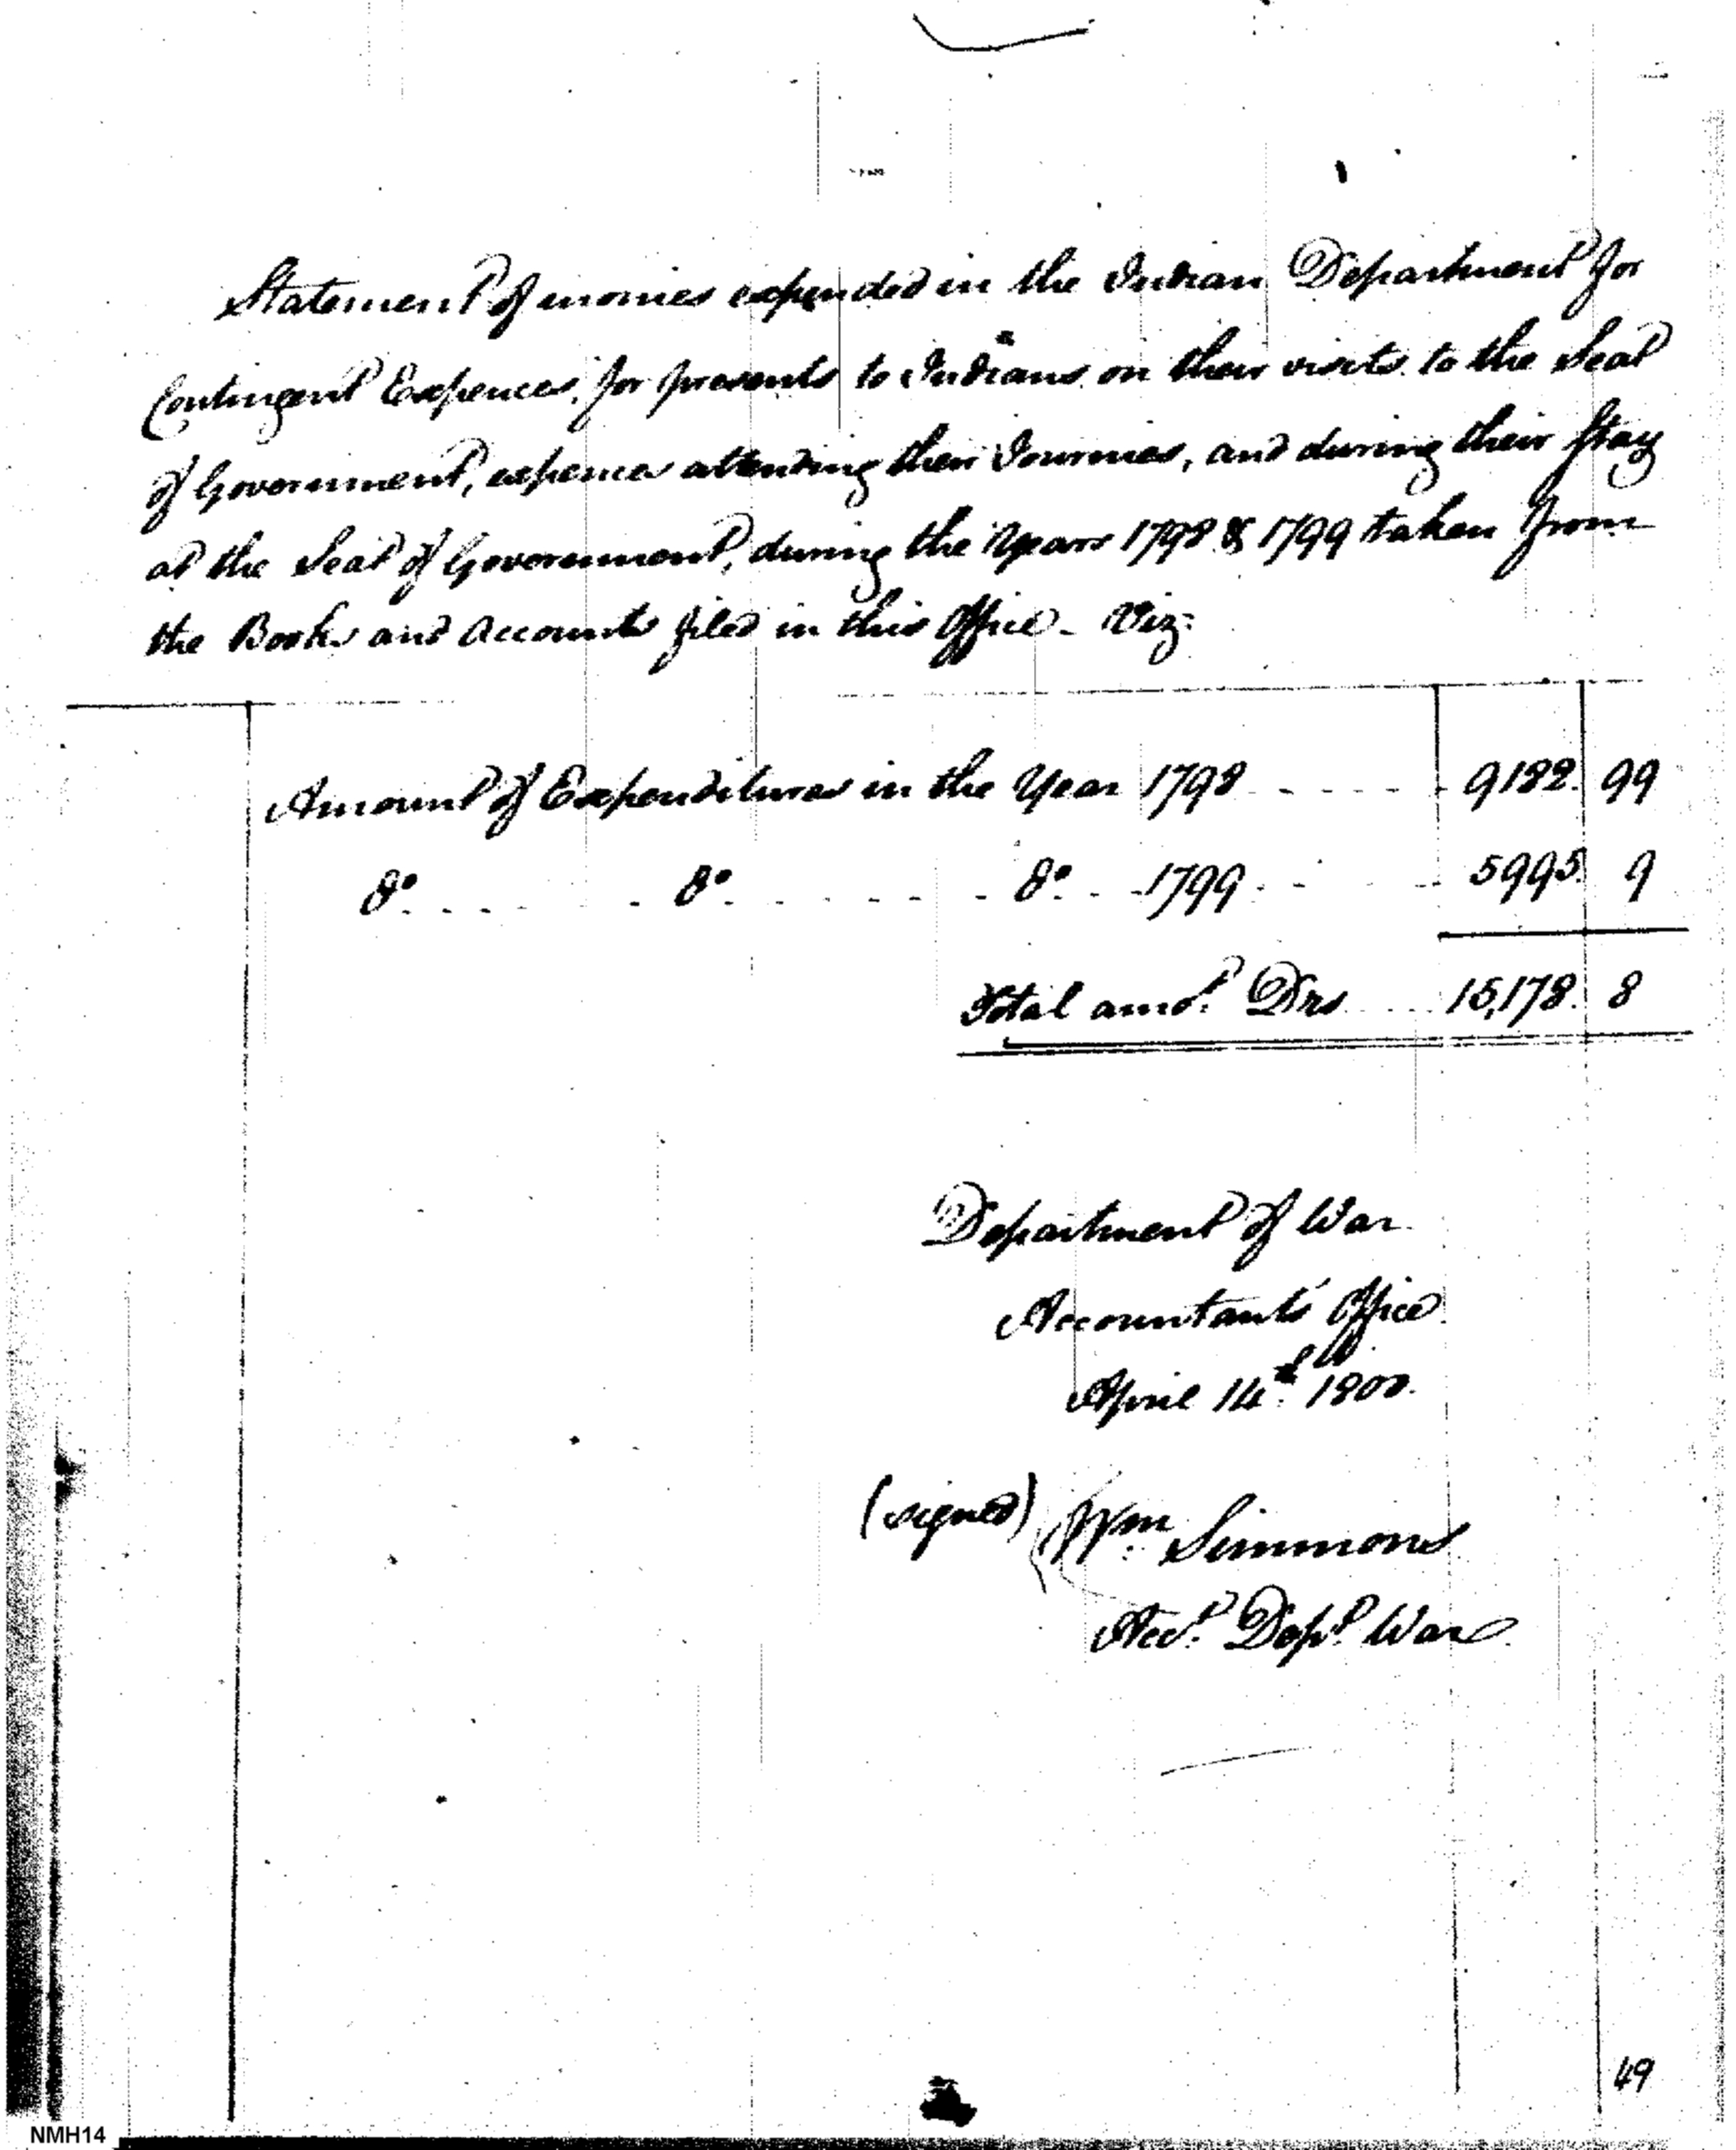 Statement of monies expended in the Indian Department for
Contingent Expences, for presents to Indians on their visits to the Seat
of Government, expences attending their Journies, and during their stay
at the Seat of Government, during the Years 1798 & 1799 taken from
the Books and Accounts filed in this Office - Viz:
Amount of Expenditures in the Year 1798 9182. 99
do. do. do. 1799 5995. 9
Total amot. Drs 15,178. 8
Department of War
Accountants Office
April 14th 1800.
(signed) Wm. Simmons
Acct. Dept. War
49
NMH14